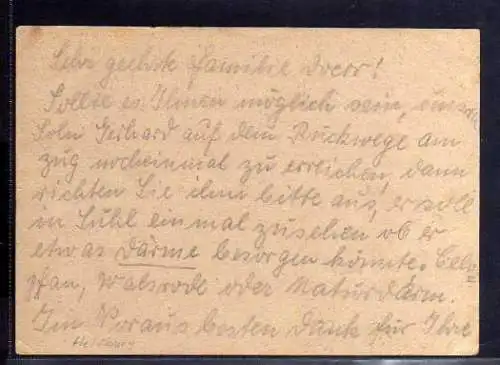 Sehr geehrte Familie Docor!
Sollte es Ihnen möglich sein, unsern
Soln Gerhard auf dem Rückwege am
zug nocheinmal zu erreichen, dann
richten Sie ihm bitte aus, er soll
in Suhl einmal zusehen ob er
etwas Därme besorgen könnte. Cello
pfan, Walsrode oder Naturdärm.
Im Voraus besten Dank für Ihre